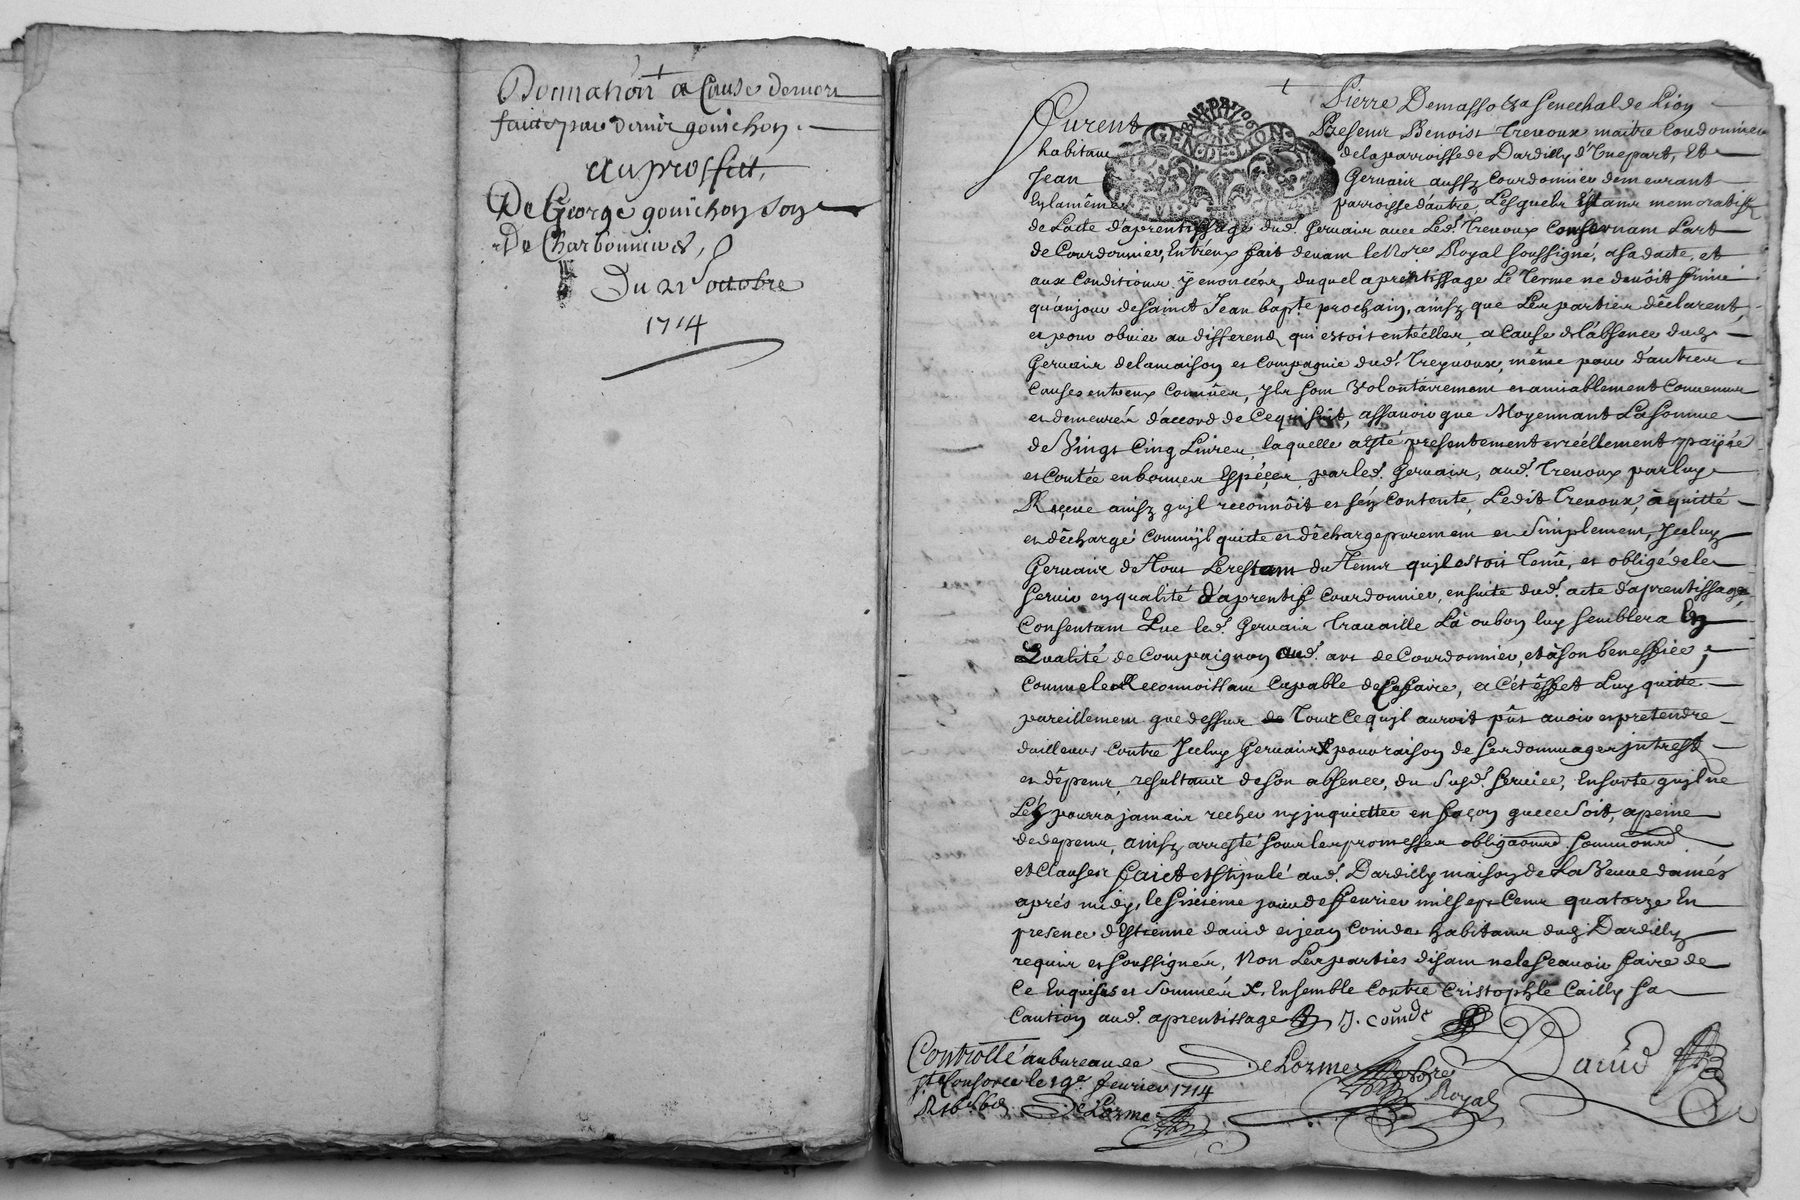 Donnation a Cause de mort
faitte par Denis gonichon
au proffict
De George gonichon son
De Charbonnieres,
Du 21e octobre
1714
Pierre Demasso &a Senechal de Lion
furent
Present Benoist Trenoux maitre Courdonnier
GEN. DE LION
habitant
de la parroisse de Dardilly d'une part, Et
Jean
Gervais aussy Courdonnier demeurant
en la même
parroisse d'autre, Lesquels estant memoratifz
de Lacte d'aprentissage dud. Gervais avec Led. Trenoux Consernant Lart
de Courdonnier, Entreux fait devant le No.re Royal soussigné, a sa datte, et
aux Conditions y enoncées, duquel aprentissage Le Terme ne devoit finir
qu'au jour de sainct Jean bap.te prochain, ainsy que Les parties déclarent,
et pour obvier au differend qui estoit entr'elles, a Cause de l'absence dud.
Gervais de la maison et Compagnie dud. Treynoux, même pour d'autres
Causes entreux Connües, Ils sont Volontairement et amiablement Convenus
et demeurés d'accord de Ce qui suit, assavoir que Moyennant La somme
de Vingt Cinq Livres, laquelle a esté presentement et réellement payée
et Contée en bonnes Espéçes, par led. Gervais, aud. Trenoux par luy
Reçeue ainsy qu'il reconnoit et s'en Contente, Ledit Trenoux, a quitté
et décharge Comm'il quitte et décharge purement et Simplement, Iceluy
Gervais de Tout Le restant du Tems qu'il estoit Tenu, et obligé de le
servir en qualité d'aprentif Courdonnier, ensuite dud. acte d'aprentissage,
Consentant Que led. Gervais Travaille Là ou bon luy semblera En
Qualité de Compaignon aud. art de Courdonnier, et à son beneffice,
Comme le Reconnoissant Capable de Ce faire, a Cét éffet Luy quitte
pareillement que dessus de Tout Ce qu'il auroit pût avoir et pretendre
dailleurs Contre Iceluy Gervais pour raison de ses dommages intrests
et dépens, resultants de son absence, du Susd. service, En sorte qu'il ne
L'en pourra jamais recher ny inquietter en façon que ce Soit, a peine
de depens, ainsy arresté sous les promesses obliga.ons soumi.ons
et Clauses faict et Stipulé aud. Dardilly maison de La Veuve damés
aprés midy, le Sixieme jour de fevrier mil sept Cent quatorze En
presence d'Estienne david et jean Coinde habitants dud. Dardilly
requis et soussignés, Non Les parties disant ne le sçavoir faire de
Ce Enquises et Sommées X. Ensemble Contre Cristophle Cailly sa
Caution aud. aprentissage J. Coinde
David
DeLorme No.re Royal
Controllé au bureau de
St Consorce le 19e fevrier 1714
DeLorme